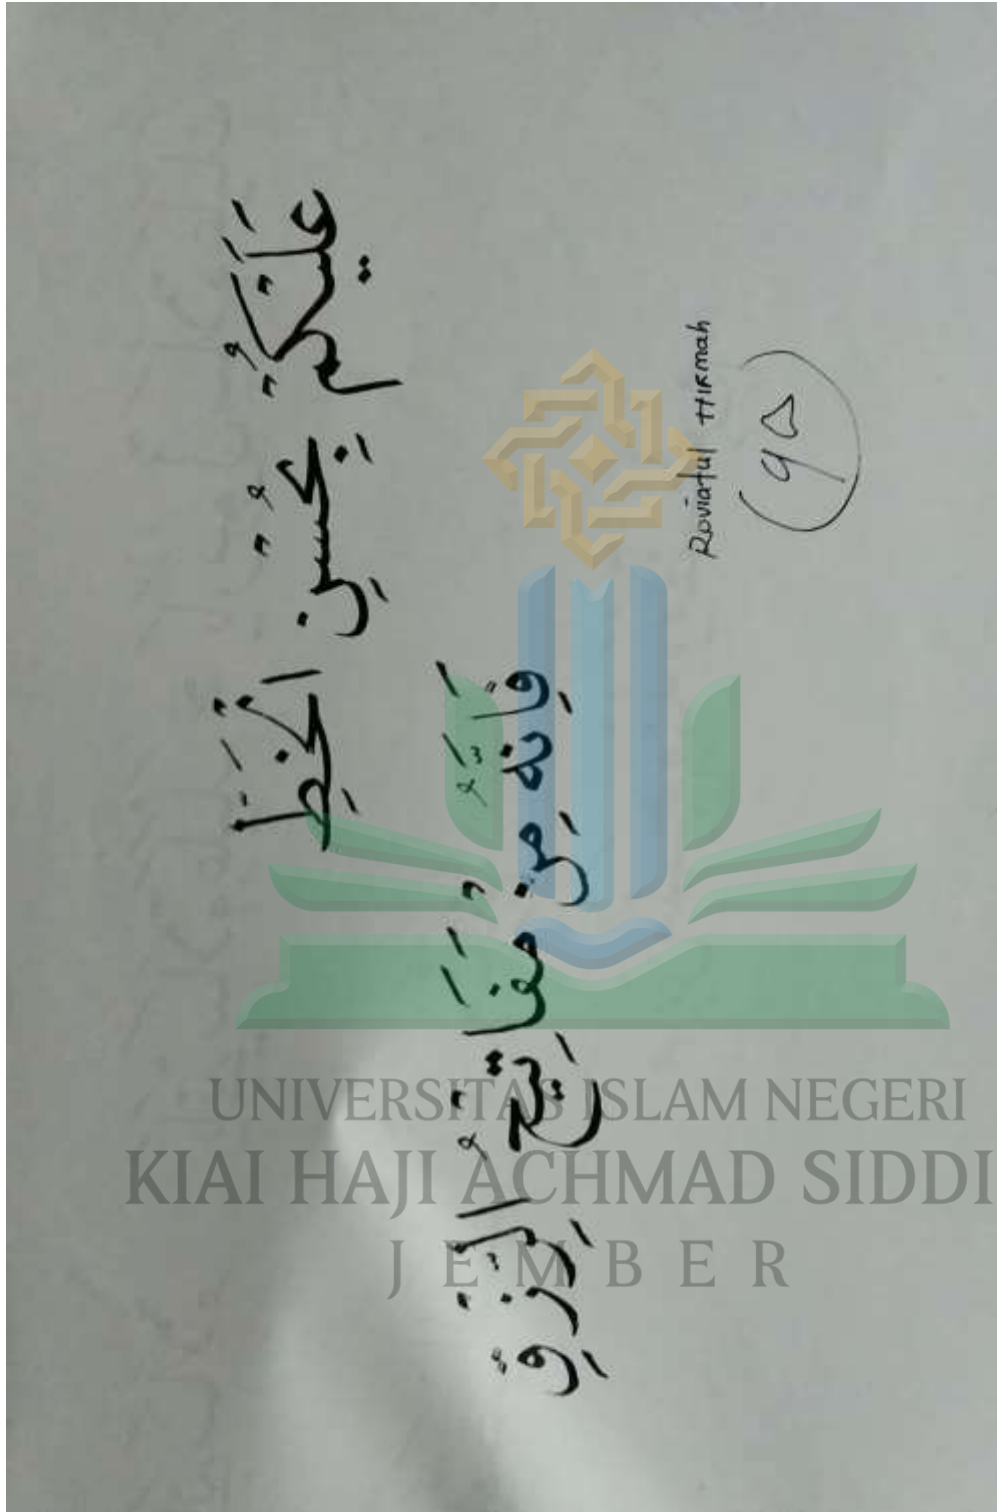 عَلَيْكُمْ بِحُسْنِ الْخَطِّ
فَإِنَّهُ مِنْ مَفَاتِيْحُ الرِّزْقِ
Roviatul Hikmah
UNIVERSITAS ISLAM NEGERI
KIAI HAJI ACHMAD SIDDI
JEMBER